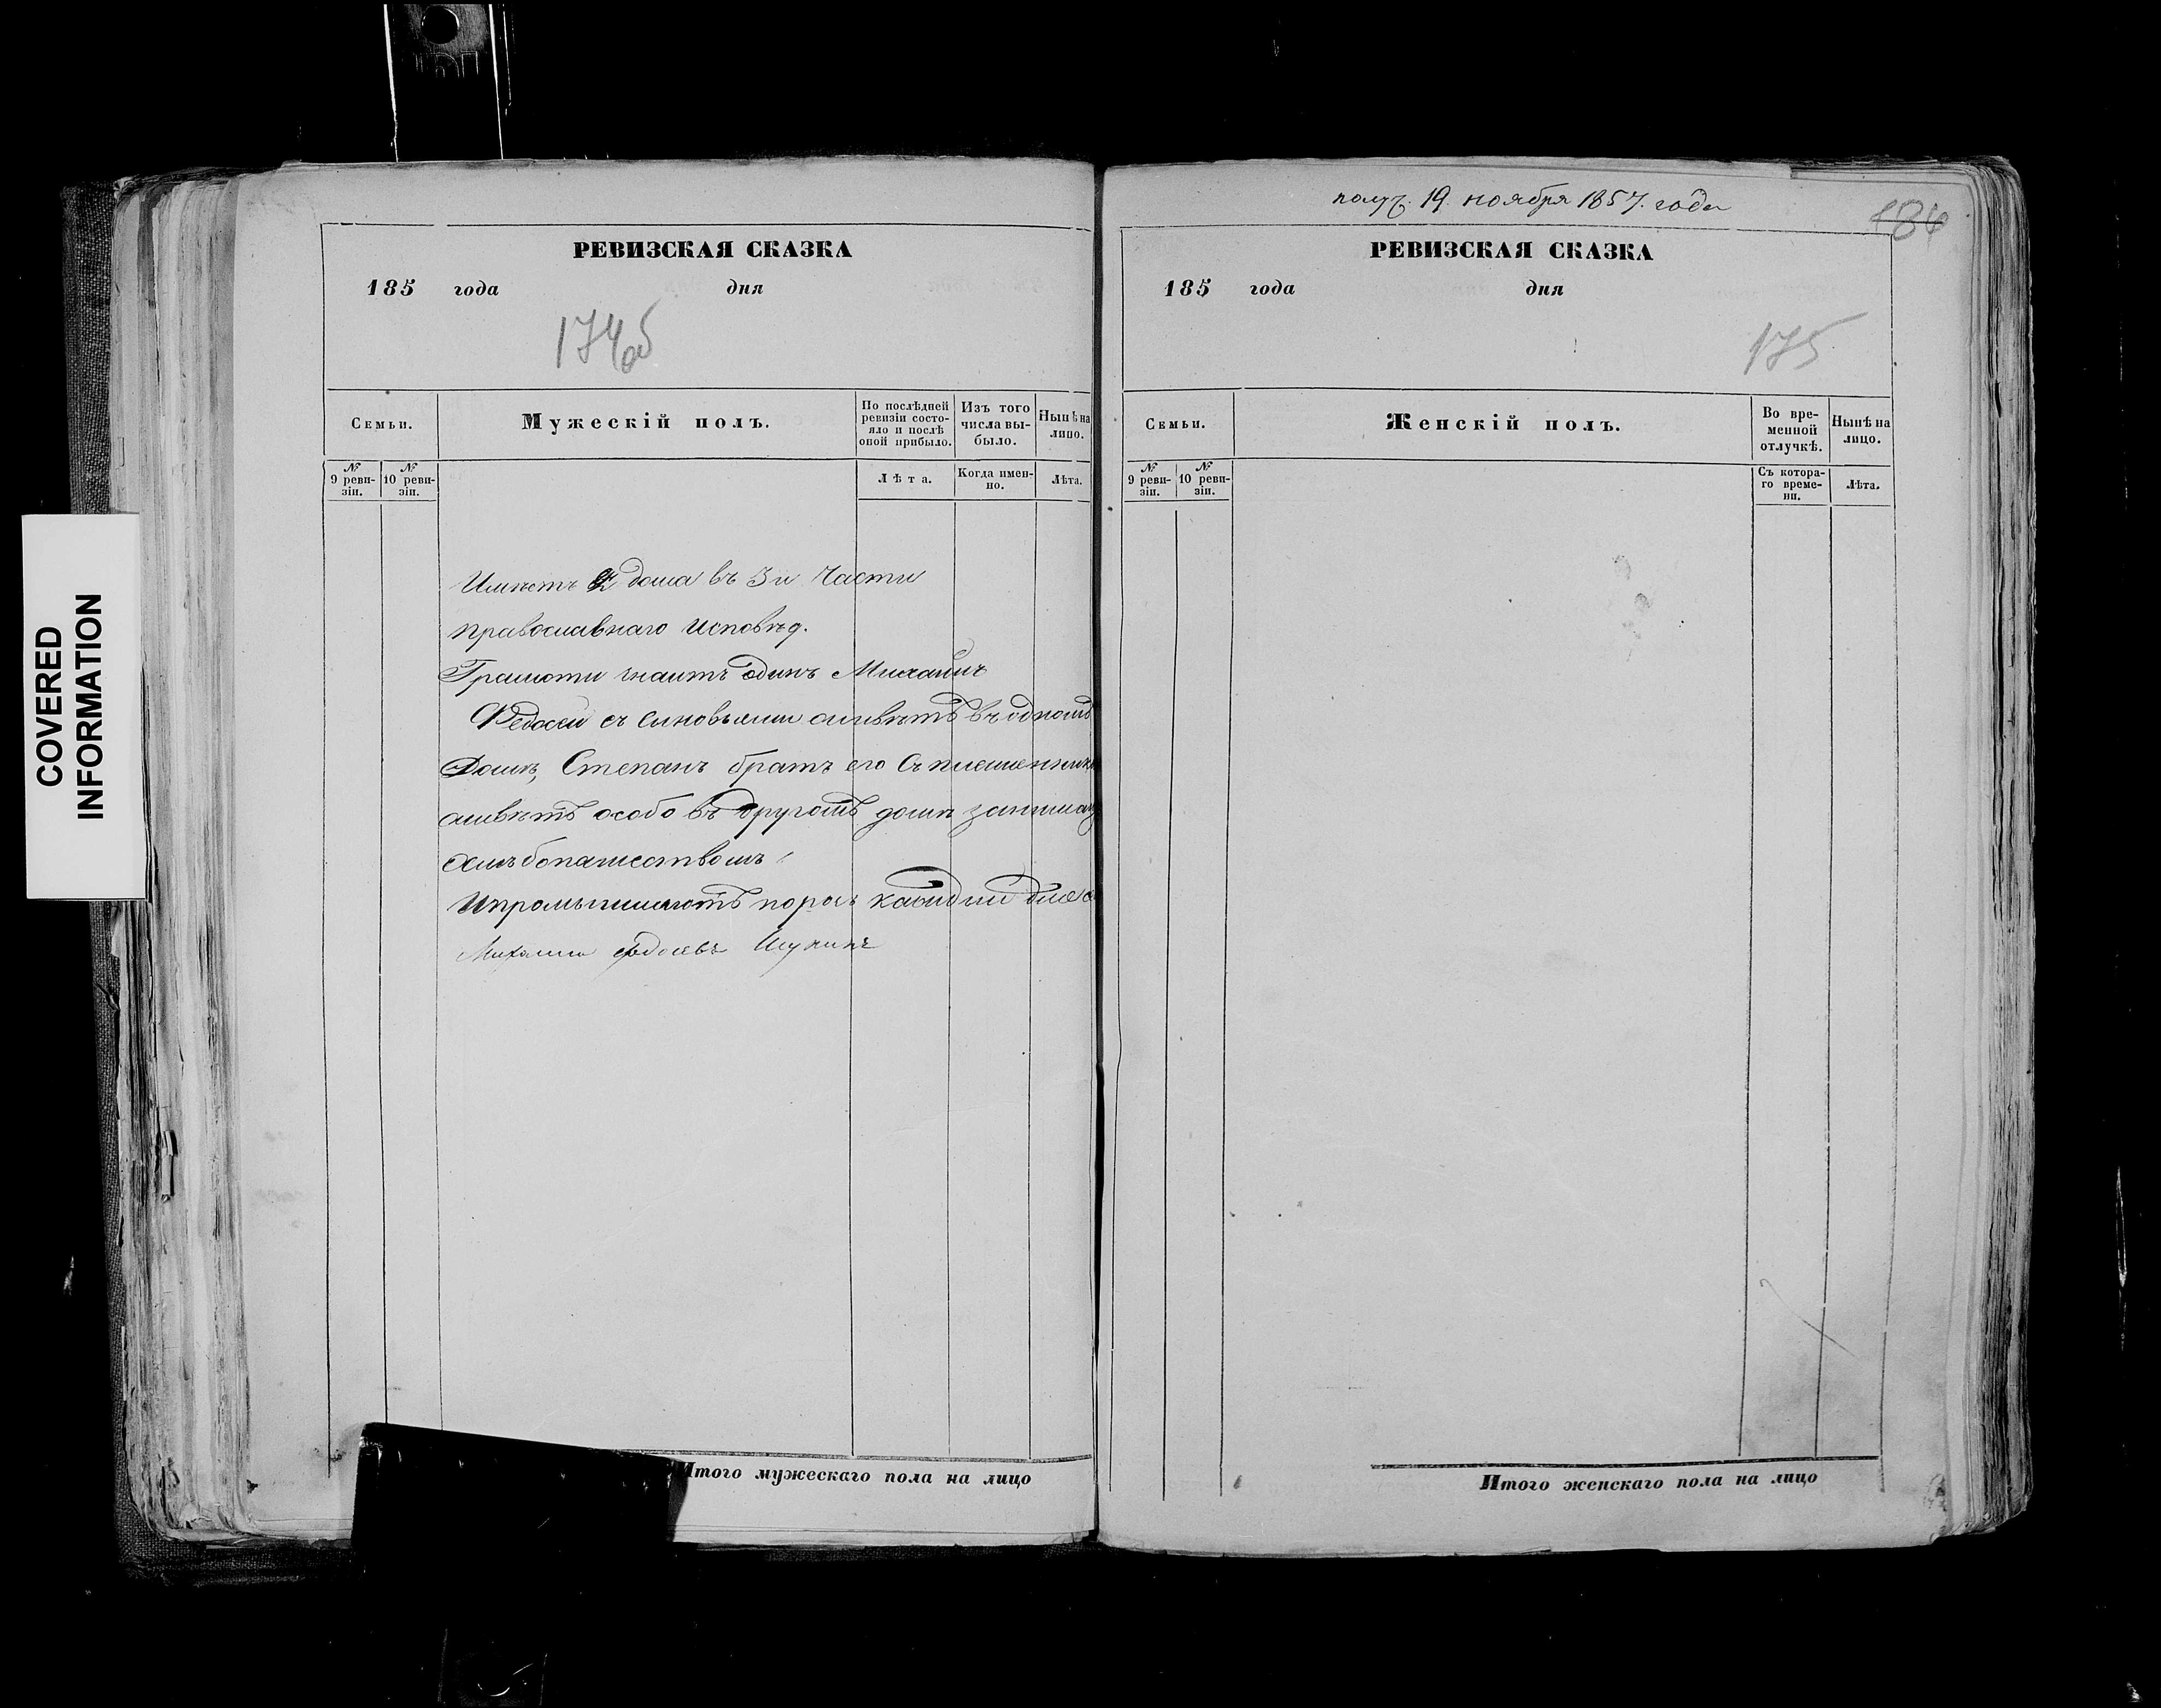 COVERED
INFORMATION
РЕВИЗСКАЯ СКАЗКА
185 года дня
174об
Семьи.
Мужескій полъ.
По послѣдней
ревизіи состо-
яло и послѣ
оной прибыло.
Изъ того
числа вы-
было.
Нынѣ на
лицо.
№
9 реви-
зіи.
№
10 реви-
зіи.
Лѣта.
Когда имен-
но.
Лѣта.
Имѣетъ 2 дома въ 3й Части
православнаго Исповѣд.
Грамоти знаитъ одинъ Михаилъ
Федосей съ Сыновьями живѣтъ въ одномъ
Домѣ, Степанъ братъ его Съ племенник
живѣтъ особо въ другомъ домѣ
Хлѣбопашеством
Ипромышляютъ порозь каждый для
Михаила Федосевъ
Итого мужескаго пола на лицо
получ. 19 ноября 1857. года
184
РЕВИЗСКАЯ СКАЗКА
185 года дня
175
Семьи.
Женскій полъ.
Во вре-
менной
отлучкѣ.
Нынѣ на
лицо.
№
9 реви-
зіи.
№
10 реви-
зіи.
Съ котора-
го време-
ни.
Лѣта.
Итого женскаго пола на лицо